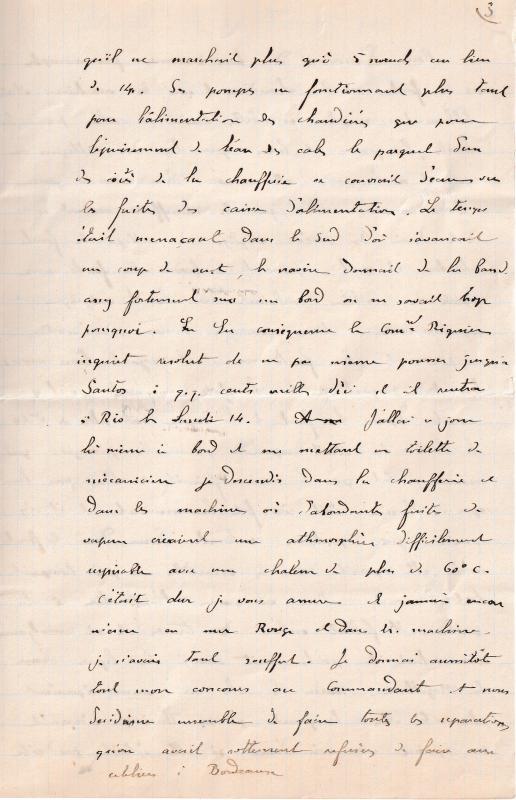 3
qu'il ne marchait plus qu'à 5 nœuds au lieu
de 14. Ses pompes ne fonctionnant plus tant
pour l'alimentation des chaudières que pour
l'épuisement de l'eau des cales le parquet d'un
des côtés de la chaufferie se couvrait d'eau vu
les fuites des caisses d'alimentation. Le temps
était menaçant dans le Sud d'où s'avançait
un coup de vent, le navire donnait de la bande
assez fortement sur un bord on ne savait trop
pourquoi. En conséquence le Comm Riquier
inquiet résolut de ne pas même pousser jusqu'à
Santos à q.q. cents milles d'ici et il rentra
à Rio le Lundi 14. J'allai ce jour
là même à bord et me mettant en toilette de
mécanicien je descendis dans la chaufferie et
dans les machine où d'abondantes fuites de
vapeur créaient une athmosphère difficilement
respirable avec une chaleur de plus de 60° C.
C'était dur je vous assure et jamais encore
même en mer Rouge et dans machine
je n'avais tant souffert. Je donnai aussitôt
tout mon concours au Commandant et nous
décidâme ensemble de faire toutes les réparations
qu'on avait sottement refusées de faire aux
ateliers à Bordeaux